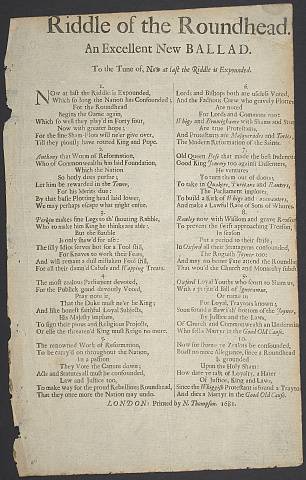 Riddle of the Roundhead.
An Excellent New BALLAD.
To the Tune of, Now at last the Riddle is Expounded.
1.
NOw at last the Riddle is Expounded,
Which so long the Nation has Confounded;
For the Roundhead
Begins the Game again,
Which so well they play'd in Forty four,
Now with greater hopes;
For the fine Sham-Plots will ne'er give over,
Till they plously have routed King and Pope.
2.
Anthony that Worm of Reformation,
Who of Commonwealths has laid Foundation,
Which the Nation
So hotly does pursue;
Let him be rewarded in the Tower,
For his Merits that:
By that base Plotting head laid lower,
We may perhaps escape what might ensue.
3.
Perkin makes fine Legs to th' shouting Rabble,
Who to make him King he thinks are able:
But the Rabble
Is only shaw'd for use:
The silly Ideot serves but for a Tool still,
For Knaves to work their Feats,
And will remain a dull mistaken Fool still,
For all their damn'd Cabals and Wapping Treats.
4.
The most zealous Parliament devoted,
For the Publick good devoutly Voted,
Pray note it,
That the Duke mu'n't be King;
And like honest faithful Loyal Subjects,
His Majesty implore,
To sign their pious and Religious Projects,
Or else the thousand'd King must Reign no more.
5.
The renowned Work of Reformation,
To be carry'd on throughout the Nation,
In a passion
They Vote the Canons down;
Acts and Statutes all must be confounded,
Law and Justice too,
To make way for the proud Rebellious Roundhead,
That they once more the Nation may undo.
6.
Lords and Bishops both are useless Voted,
And the Factious Crew who gravely Plotted
Are noted
For Lords and Commons;
Whiggs and Evangelicans with Shams and Stories
Are true Protestants,
And Protestants are Masqueraders and Tories,
The Modern Reformation of the Saints.
7.
Old Queen Bess that made the best Indentures
Good King Jemmy too against Dissenters
He ventures
To turn them out of doors:
To take in Quakers, Puritans and Ranters,
The Parliament implore;
To build a Kirk of Whigs and Covenanters,
And make a Lawful Race of Sons of Whores.
8.
Rowley now with Wisdom and grave Reason
To prevent the sad approaching Treason,
In season
Put a period to their strife;
In Oxford all their Arrogance confounded,
The Regicides Temper too:
And may no honest Peer attend the Roundhead
That wou'd the Church and Monarchy subdue.
9.
Oxford Loyal Youths who scorn to Sham us,
With a perjur'd Bill of Ignoramus,
Or name us
For Loyal, Traytors known;
Soon found a flaw i'th' bottom of the Joyner,
By Justice and the Laws,
Of Church and Commonwealth an Underminer,
Who fell a Martyr in the Good Old Cause.
10.
Now for shame ye Zealots be confounded,
Boast no more Allegiance, since a Roundhead
Is grounded
Upon the Holy Sham:
How dare ye talk of Loyalty, a Hater
Of Justice, King and Laws,
Since the Whiggish Protestant is found a Traytor
And dies a Martyr in the Good Old Cause.
LONDON: Printed by N. Thompson. 1681.